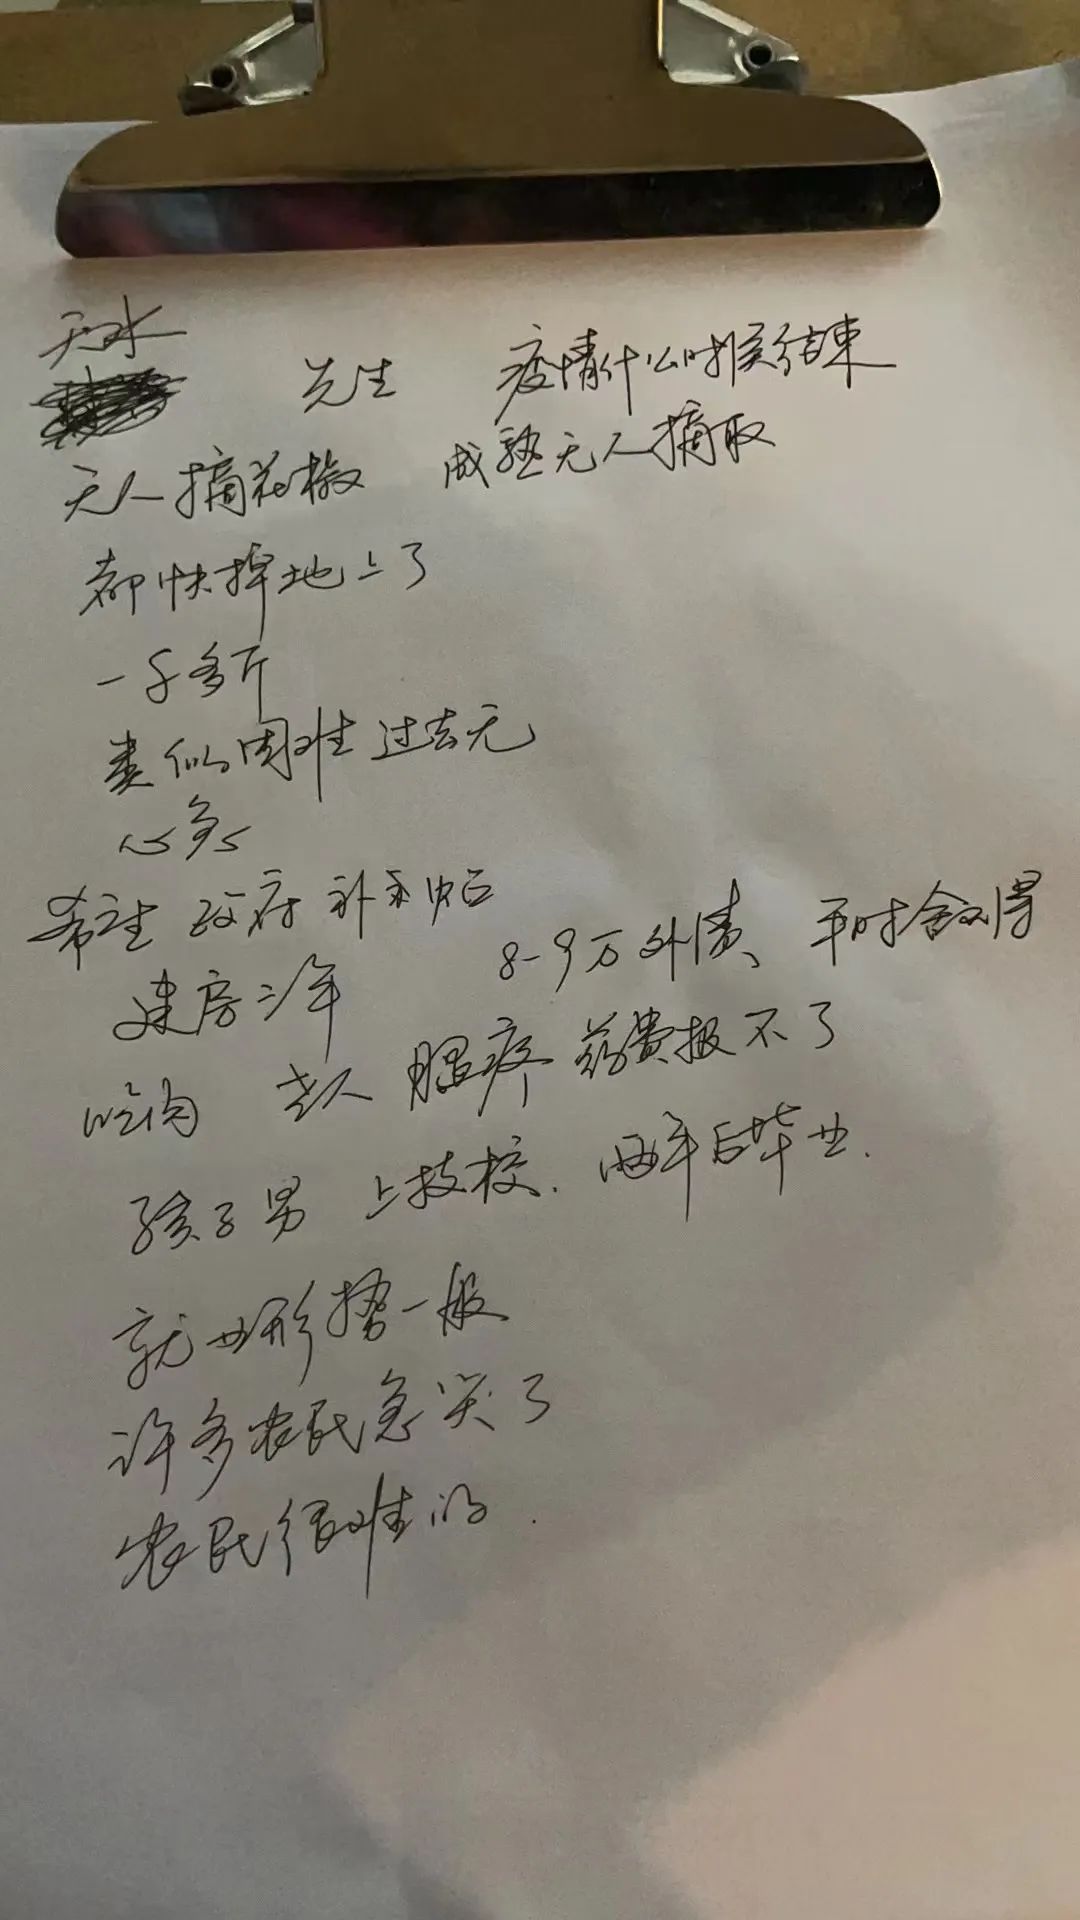 天水
先生 疫情什么时候结束
无人摘花椒 成熟无人摘取
都快掉地上了
一千多斤
类似困难过去无
心急
希望 政府 补贴
建房三年 8-9万外债、平时舍不得
吃肉 老人 腿疼 药费报不了
孩子男 上技校. 两年后毕业.
就业形势一般
许多农民急哭了
农民很难的.